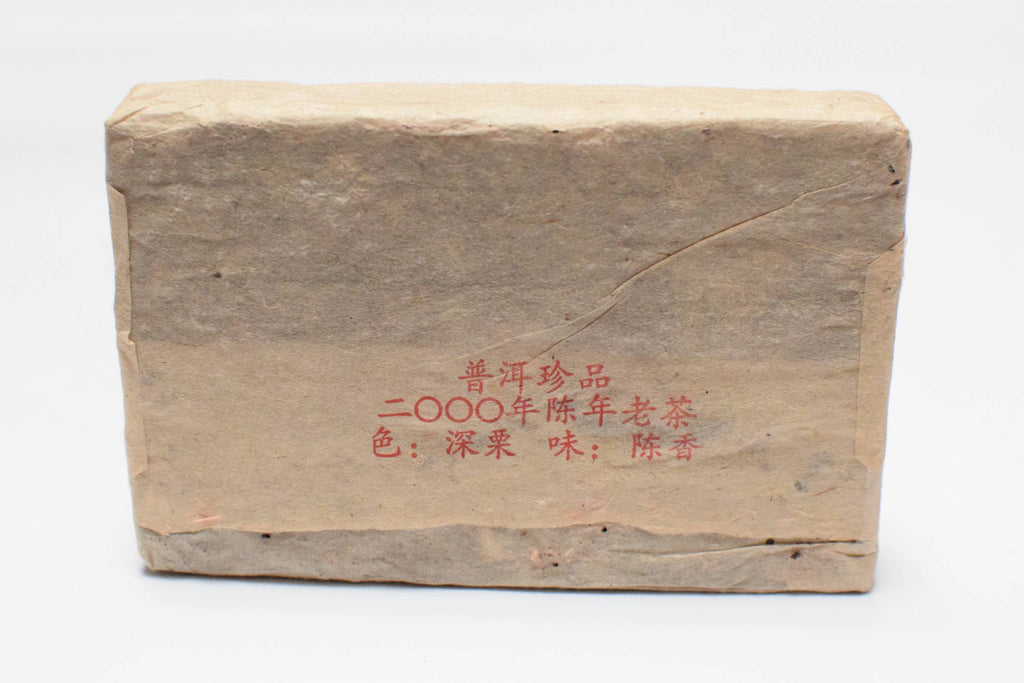 普洱珍品
二〇〇〇年陈年老茶
色：深栗 味：陈香